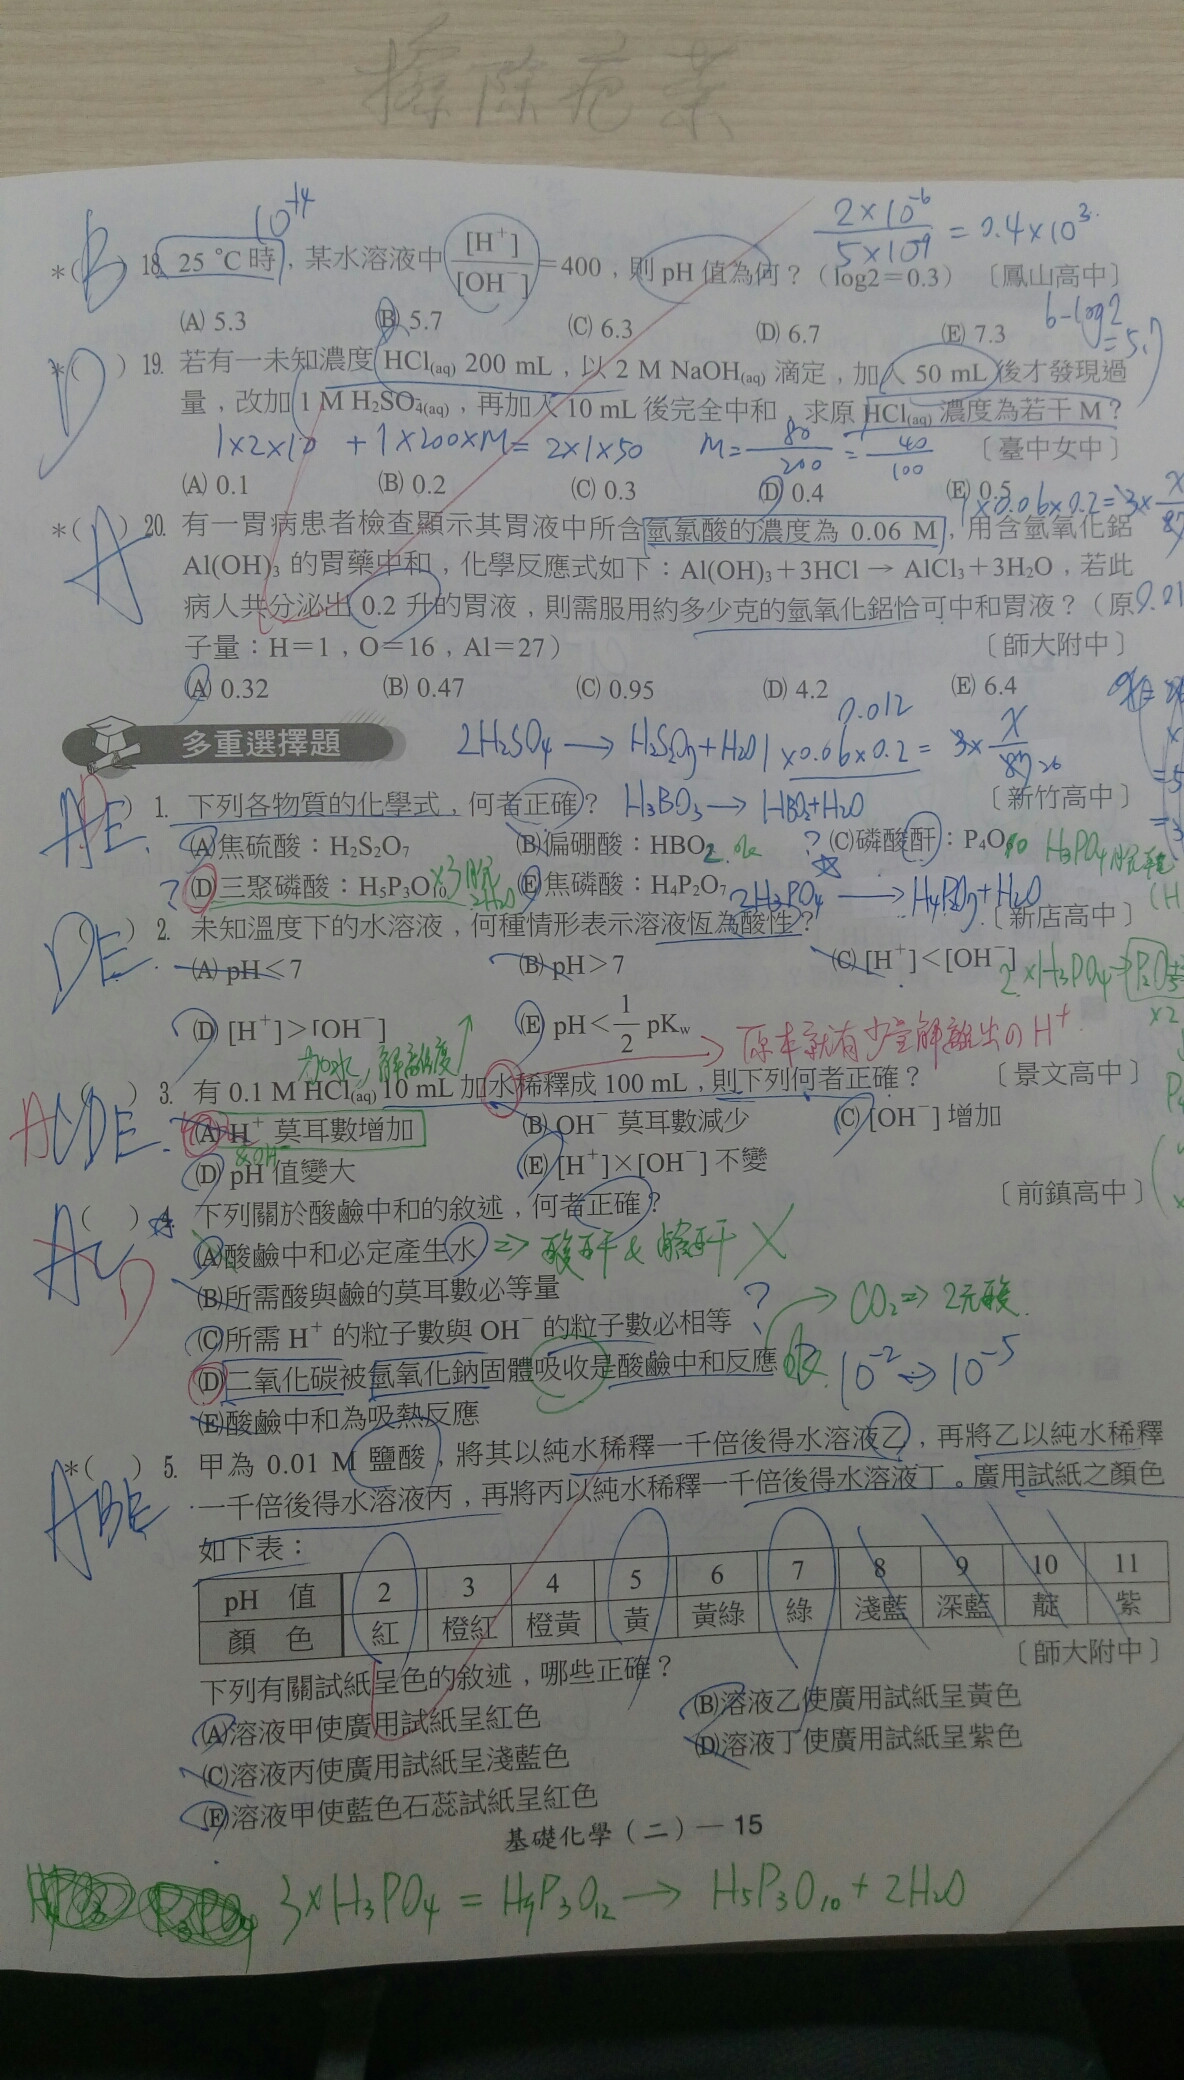 擦除疤
10⁻¹⁴
2×10⁻⁶ / 5×10⁻⁹ = 0.4×10³
*( B ) 18. 25 °C 時，某水溶液中 [H⁺]/[OH⁻] = 400，則 pH 值為何？（log2＝0.3）〔鳳山高中〕
(A) 5.3 (B) 5.7 (C) 6.3 (D) 6.7 (E) 7.3
6-log2
=5.7
*( D ) 19. 若有一未知濃度 HCl(aq) 200 mL，以 2 M NaOH(aq) 滴定，加入 50 mL 後才發現過
量，改加 1 M H₂SO₄(aq)，再加入 10 mL 後完全中和，求原 HCl(aq) 濃度為若干 M？
1×2×10 + 1×200×M = 2×1×50 M = 80/200 = 40/100 〔臺中女中〕
(A) 0.1 (B) 0.2 (C) 0.3 (D) 0.4 (E) 0.5
1×0.06×0.2=3×
*( A ) 20. 有一胃病患者檢查顯示其胃液中所含氫氯酸的濃度為 0.06 M，用含氫氧化鋁
Al(OH)₃ 的胃藥中和，化學反應式如下：Al(OH)₃＋3HCl → AlCl₃＋3H₂O，若此
病人共分泌出 0.2 升的胃液，則需服用約多少克的氫氧化鋁恰可中和胃液？（原
子量：H＝1，O＝16，Al＝27） 〔師大附中〕
(A) 0.32 (B) 0.47 (C) 0.95 (D) 4.2 (E) 6.4
0.012
多重選擇題
2H₂SO₄ → H₂S₂O₇+H₂O 1×0.06×0.2 = 3×
( ADE ) 1. 下列各物質的化學式，何者正確？ H₃BO₃ → HBO₂+H₂O 〔新竹高中〕
(A) 焦硫酸：H₂S₂O₇ (B) 偏硼酸：HBO₂ ok ? (C) 磷酸酐：P₄O₁₀ H₃PO₄
? (D) 三聚磷酸：H₅P₃O₁₀ ×3 脫 2H₂O (E) 焦磷酸：H₄P₂O₇ 2H₃PO₄ → H₄P₂O₇+H₂O
〔新店高中〕
( DE ) 2. 未知溫度下的水溶液，何種情形表示溶液恆為酸性？
(A) pH＜7 (B) pH＞7 (C) [H⁺]＜[OH⁻]
2×H₃PO₄
×2
(D) [H⁺]＞[OH⁻] (E) pH＜1/2 pKw → 原本就有少量解離出の H⁺
加水，解離度↑
( ACDE ) 3. 有 0.1 M HCl(aq) 10 mL 加水稀釋成 100 mL，則下列何者正確？ 〔景文高中〕
(A) H⁺ 莫耳數增加 (B) OH⁻ 莫耳數減少 (C) [OH⁻] 增加
&OH⁻
(D) pH 值變大 (E) [H⁺]×[OH⁻] 不變
〔前鎮高中〕
( ) 4. 下列關於酸鹼中和的敘述，何者正確？
(A) 酸鹼中和必定產生水 ⇒ 酸酐 & 鹼酐 ×
(B) 所需酸與鹼的莫耳數必等量
(C) 所需 H⁺ 的粒子數與 OH⁻ 的粒子數必相等 ? → CO₂ ⇒ 2元酸
(D) 二氧化碳被氫氧化鈉固體吸收是酸鹼中和反應 ok 10⁻² ⇒ 10⁻⁵
(E) 酸鹼中和為吸熱反應
*( ABE ) 5. 甲為 0.01 M 鹽酸，將其以純水稀釋一千倍後得水溶液乙，再將乙以純水稀釋
一千倍後得水溶液丙，再將丙以純水稀釋一千倍後得水溶液丁。廣用試紙之顏色
如下表：
pH 值 2 3 4 5 6 7 8 9 10 11
顏 色 紅 橙紅 橙黃 黃 黃綠 綠 淺藍 深藍 靛 紫
〔師大附中〕
下列有關試紙呈色的敘述，哪些正確？
(A) 溶液甲使廣用試紙呈紅色 (B) 溶液乙使廣用試紙呈黃色
(C) 溶液丙使廣用試紙呈淺藍色 (D) 溶液丁使廣用試紙呈紫色
(E) 溶液甲使藍色石蕊試紙呈紅色
基礎化學（二）— 15
3×H₃PO₄ = H₉P₃O₁₂ → H₅P₃O₁₀ + 2H₂O